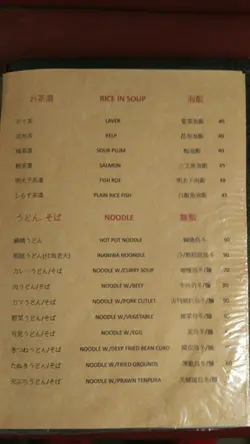 お茶漬 RICE IN SOUP 泡飯
LAVER 紫菜泡飯 45
KELP 昆布泡飯 45
梅茶漬 SOUR PLUM 梅泡飯
鮭茶漬 SALMON 三文魚泡飯 45
明太子茶漬 FISH ROE 明太子泡飯 48
しらす茶漬 PLAIN RICE FISH 白飯魚泡飯 45
うどん、そば NOODLE 麵類
鍋焼うどん HOT POT NOODLE 鍋燒烏冬 90
INANIWA NOONDLE 90
カレーうどん/そば NOODLE W./CURRY SOUP 咖喱烏冬/麵 60
肉うどん/そば NOODLE W./BEEF 牛肉烏冬/麵 60
カツうどん/そば NOODLE W./PORK CUTLET 吉列豬扒烏冬/麵 60
野菜うどん/そば NOODLE W./VEGETABLE 野菜烏冬/麵 50
月見うどん/そば NOODLE W./EGG 烏冬/麵 50
きつねうどん/そば NOODLE W./DEYP FRIED BEAN CURD 烏冬/麵 50
たぬきうどん/そば NOODLE W./FRIED GROUNDS 烏冬/麵 50
天ぷらうどん/そば NOODLE W./PRAWN TENPURA 天婦羅烏冬/麵 70